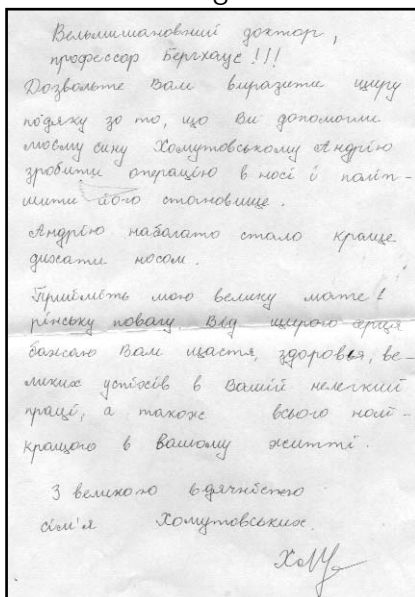 Вельмишановний доктор,
профессор Бергхаус!!!
Дозвольте Вам виразити щиру
подяку за то, що Ви допомогли
моєму сину Хомутовському Андрію
зробити операцію в носі і поліп-
шити його становище.
Андрію набагато стало краще
дихати носом.
Прийміть мою велику мате
рінську повагу. Від щирого серця
бажаю Вам щастя, здоров'я, ве-
ликих успіхів в Вашій нелегкій
праці, а також всього най-
кращого в Вашому житті.
З великою вдячністю
сім'я Хомутовських.